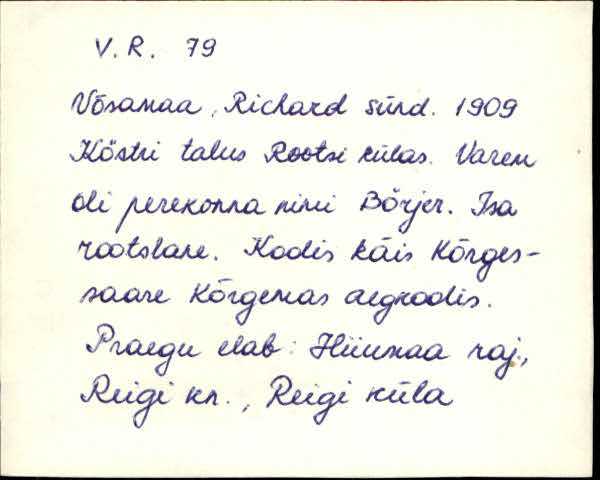 V. R. 79
Võsamaa, Richard sünd. 1909
Köstri talus Rootsi külas. Varem
oli perekonna nimi Börjer. Isa
rootslane. Kodis käis Kõrges-
saare Kõrgemas aegkoolis.
Praegu elab: Hiiumaa raj.,
Reigi kn., Reigi küla